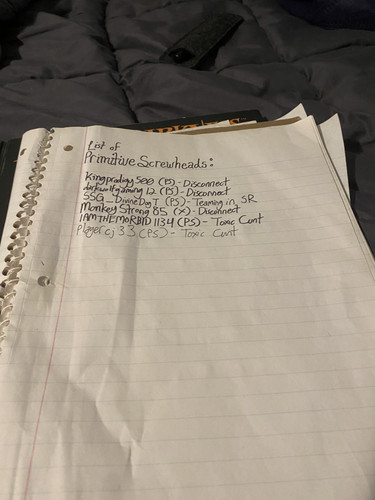 List of
Primitive Screwheads:
Kingprodigy500 (PS) - Disconnect
darkwolfgaming 12 (PS) - Disconnect
SSG_DivineDogT (PS) - Teaming in SR
Monkey Strong 65 (X) - Disconnect
IAMTHEMORBID1134 (PS) - Toxic Cunt
Playercj33 (PS) - Toxic Cunt